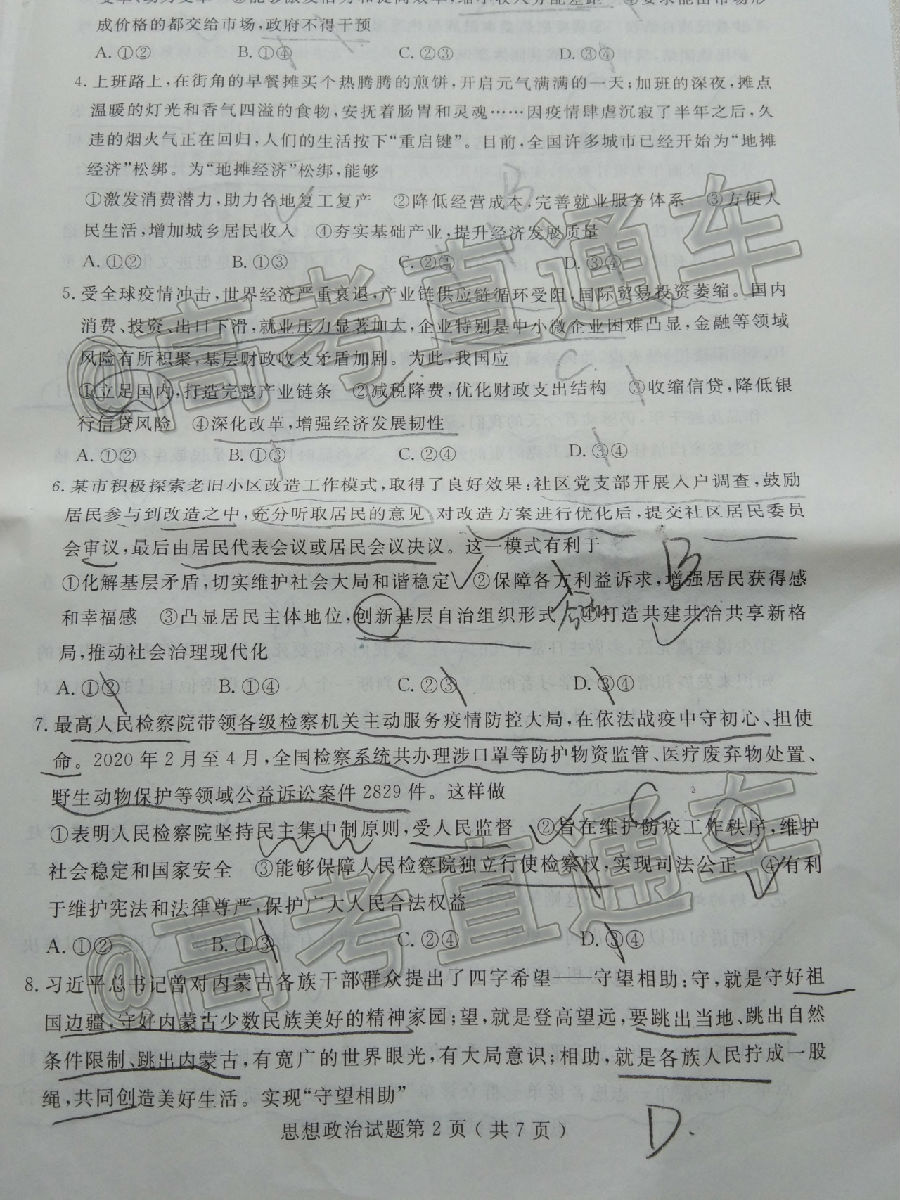 成价格的都交给市场,政府不得干预
A.①② B.①④ C.②③ D.③④
4.上班路上,在街角的早餐摊买个热腾腾的煎饼,开启元气满满的一天;加班的深夜,摊点
温暖的灯光和香气四溢的食物,安抚着肠胃和灵魂……因疫情肆虐沉寂了半年之后,久
违的烟火气正在回归,人们的生活按下“重启键”。目前,全国许多城市已经开始为“地摊
经济”松绑。为“地摊经济”松绑,能够
B
①激发消费潜力,助力各地复工复产 ②降低经营成本,完善就业服务体系 ③方便人
民生活,增加城乡居民收入 ④夯实基础产业,提升经济发展质量
A.①② B.①③ C.②③ D.③④
5.受全球疫情冲击,世界经济严重衰退,产业链供应链循环受阻,国际贸易投资萎缩。国内
消费、投资、出口下滑,就业压力显著加大,企业特别是中小微企业困难凸显,金融等领域
风险有所积聚,基层财政收支矛盾加剧。为此,我国应
C
①立足国内,打造完整产业链条 ②减税降费,优化财政支出结构 ③收缩信贷,降低银
行信贷风险 ④深化改革,增强经济发展韧性
A.①② B.①③ C.②④ D.③④
6.某市积极探索老旧小区改造工作模式,取得了良好效果:社区党支部开展入户调查,鼓励
居民参与到改造之中,充分听取居民的意见,对改造方案进行优化后,提交社区居民委员
会审议,最后由居民代表会议或居民会议决议。这一模式有利于
B
①化解基层矛盾,切实维护社会大局和谐稳定 ②保障各方利益诉求,增强居民获得感
和幸福感 ③凸显居民主体地位,创新基层自治组织形式 ④打造共建共治共享新格
局,推动社会治理现代化
A.①② B.①④ C.②③ D.③④
7.最高人民检察院带领各级检察机关主动服务疫情防控大局,在依法战疫中守初心、担使
命。2020年2月至4月,全国检察系统共办理涉口罩等防护物资监管、医疗废弃物处置、
野生动物保护等领域公益诉讼案件2829件。这样做
C
①表明人民检察院坚持民主集中制原则,受人民监督 ②旨在维护防疫工作秩序,维护
社会稳定和国家安全 ③能够保障人民检察院独立行使检察权,实现司法公正 ④有利
于维护宪法和法律尊严,保护广大人民合法权益
A.①② B.①③ C.②④ D.③④
8.习近平总书记曾对内蒙古各族干部群众提出了四字希望——守望相助;守,就是守好祖
国边疆,守好内蒙古少数民族美好的精神家园;望,就是登高望远,要跳出当地、跳出自然
条件限制、跳出内蒙古,有宽广的世界眼光,有大局意识;相助,就是各族人民拧成一股
绳,共同创造美好生活。实现“守望相助”
D.
思想政治试题第2页(共7页)
@高考直通车
@高考直通车